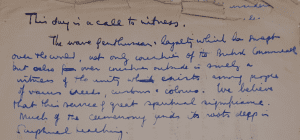 This day is a call to witness.
The wave of enthusiasm & loyalty which has swept
over the world, not only countries of the British Commonwealth
but also over countries outside is surely a
witness of the unity which exists among people
of various creeds, customs & colours. We believe
that this service of great spiritual significance.
Much of the ceremony finds its roots deep in
Scriptural teaching.